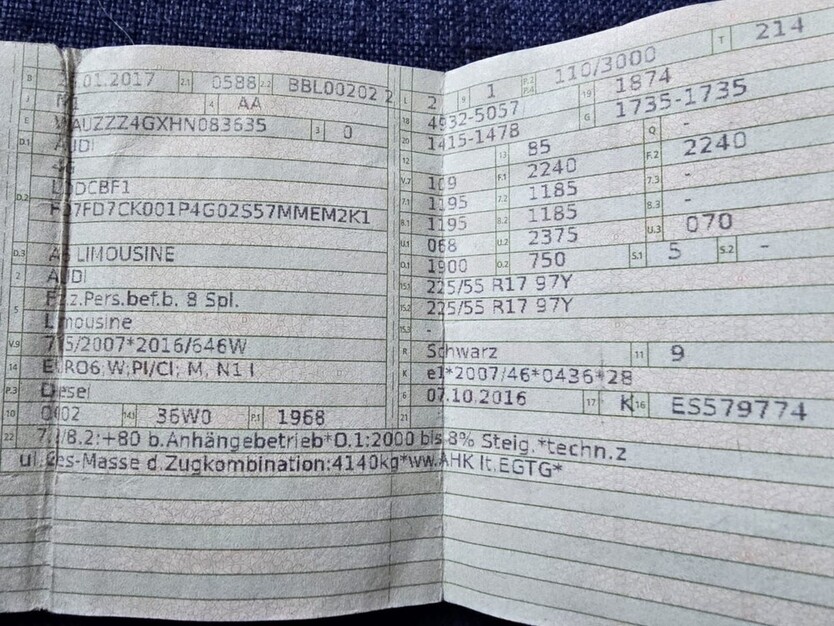 B .01.2017 2.1 0588 2.2 BBL00202 2
J M1 4 AA
E WAUZZZ4GXHN083635 3 0
D.1 AUDI
4G
D.2 DCBF1
F 7FD7CK001P4G02S57MMEM2K1
D.3 A6 LIMOUSINE
2 AUDI
5 Fz.z.Pers.bef.b. 8 Spl.
Limousine
V.9 715/2007*2016/646W
14 EURO6;W;PI/CI; M, N1 I
P.3 Diesel
10 0002 14.1 36W0 P.1 1968
L 2 9 1 P.2 P.4 110/3000 T 214
18 4932-5057 19 1874
20 1415-1478 G 1735-1735
12 - 13 85 Q -
V.7 109 F.1 2240 F.2 2240
7.1 1195 7.2 1185 7.3 -
8.1 1195 8.2 1185 8.3 -
U.1 068 U.2 2375 U.3 070
O.1 1900 O.2 750 S.1 5 S.2 -
15.1 225/55 R17 97Y
15.2 225/55 R17 97Y
15.3 -
R Schwarz 11 9
K e1*2007/46*0436*28
6 07.10.2016 17 K 16 ES579774
21
22 7. /8.2:+80 b.Anhängebetrieb*O.1:2000 bis 8% Steig.*techn.z
ul.Ges-Masse d.Zugkombination:4140kg*ww.AHK lt.EGTG*